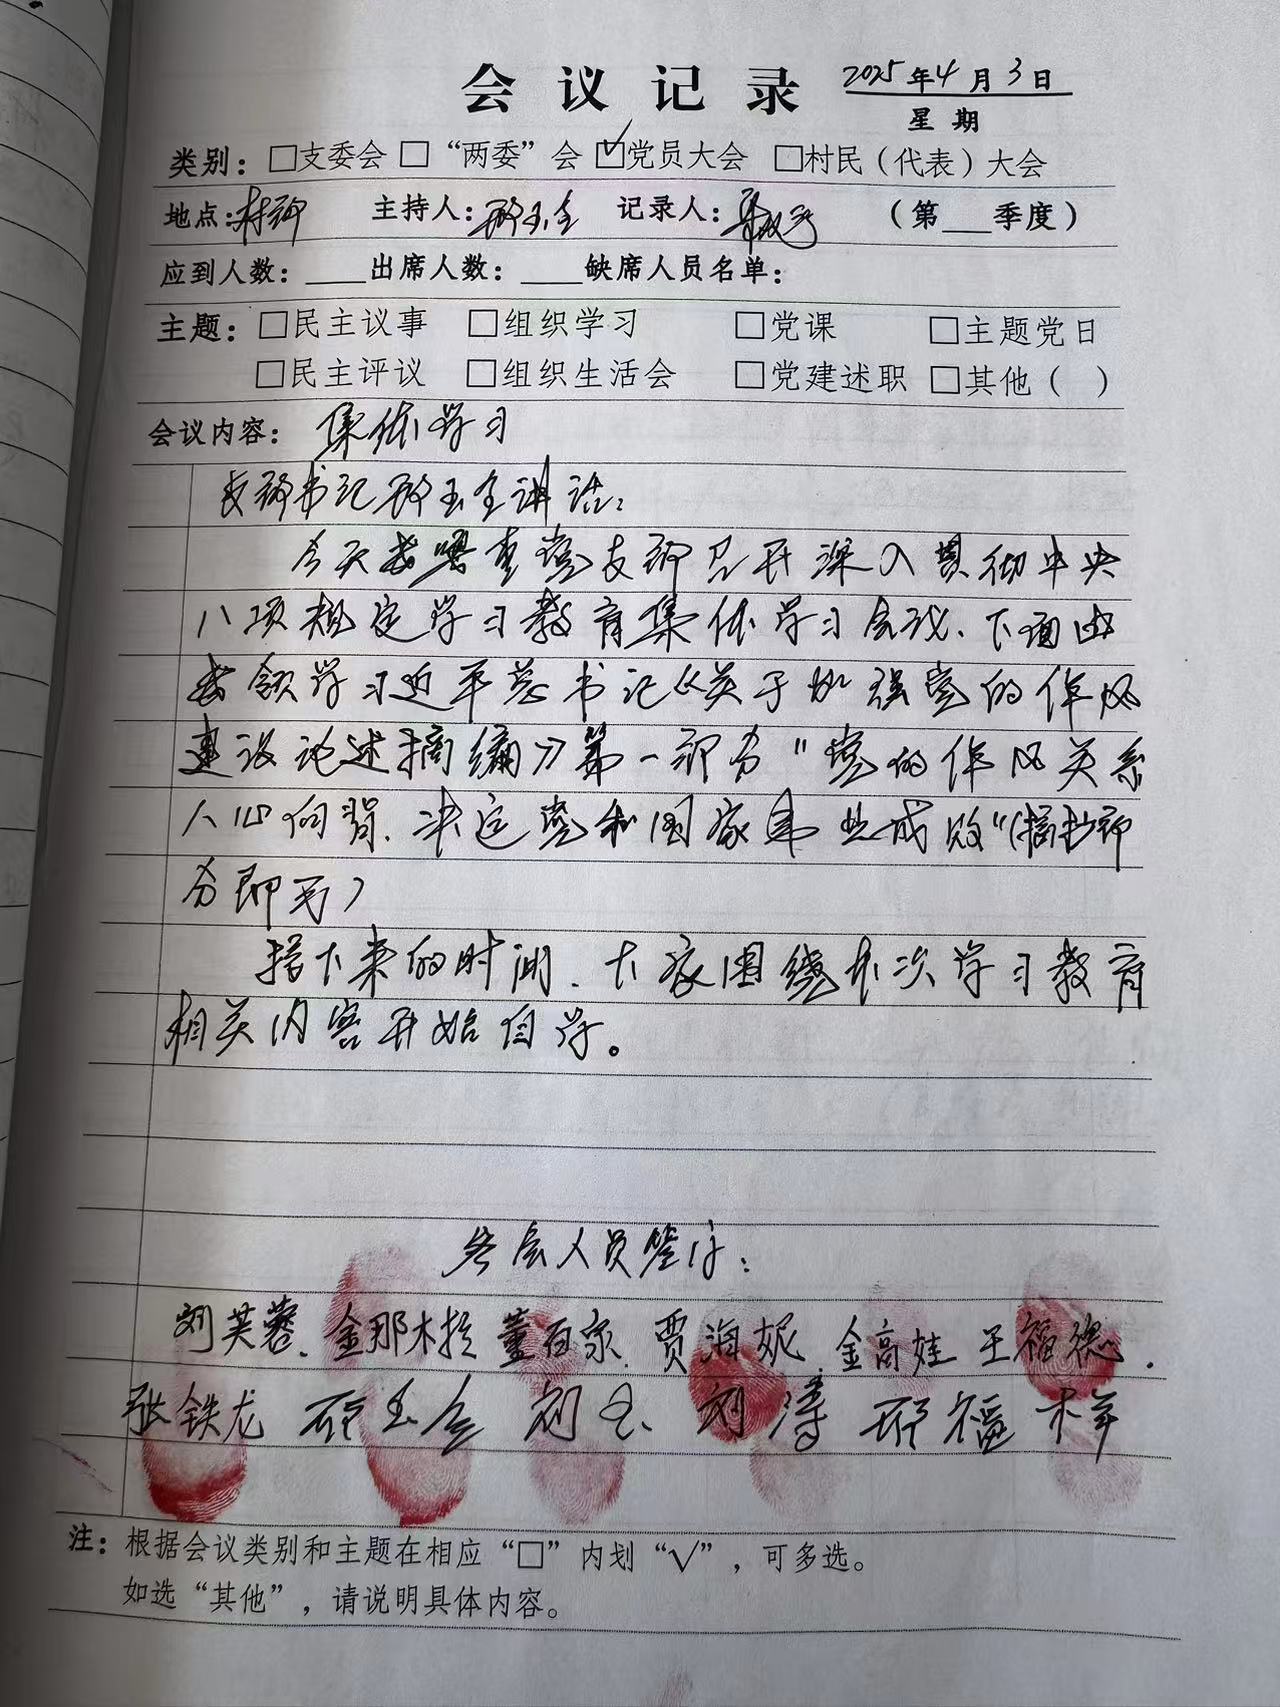 会议记录 2025年4月3日
星期
类别：□支委会 □“两委”会 ☑党员大会 □村民（代表）大会
地点：村部 主持人：邢玉全 记录人： （第___季度）
应到人数：____出席人数：____缺席人员名单：
主题：□民主议事 □组织学习 □党课 □主题党日
□民主评议 □组织生活会 □党建述职 □其他（ ）
会议内容： 集体学习
支部书记邢玉全讲话：
今天我嘎查党支部召开深入贯彻中央
八项规定学习教育集体学习会议、下面由
我领学习近平总书记《关于加强党的作风
建设论述摘编》第一部分“党的作风关系
人心向背、决定党和国家事业成败”（摘抄部
分即可）
接下来的时间、大家围绕本次学习教育
相关内容开始自学。
参会人员签字：
刘芙蓉、金那木拉 董百家、贾海妮、金高娃 王福德、
张铁龙 邢玉全 刘玉 刘涛 邢福祥
注：根据会议类别和主题在相应“□”内划“√”，可多选。
如选“其他”，请说明具体内容。